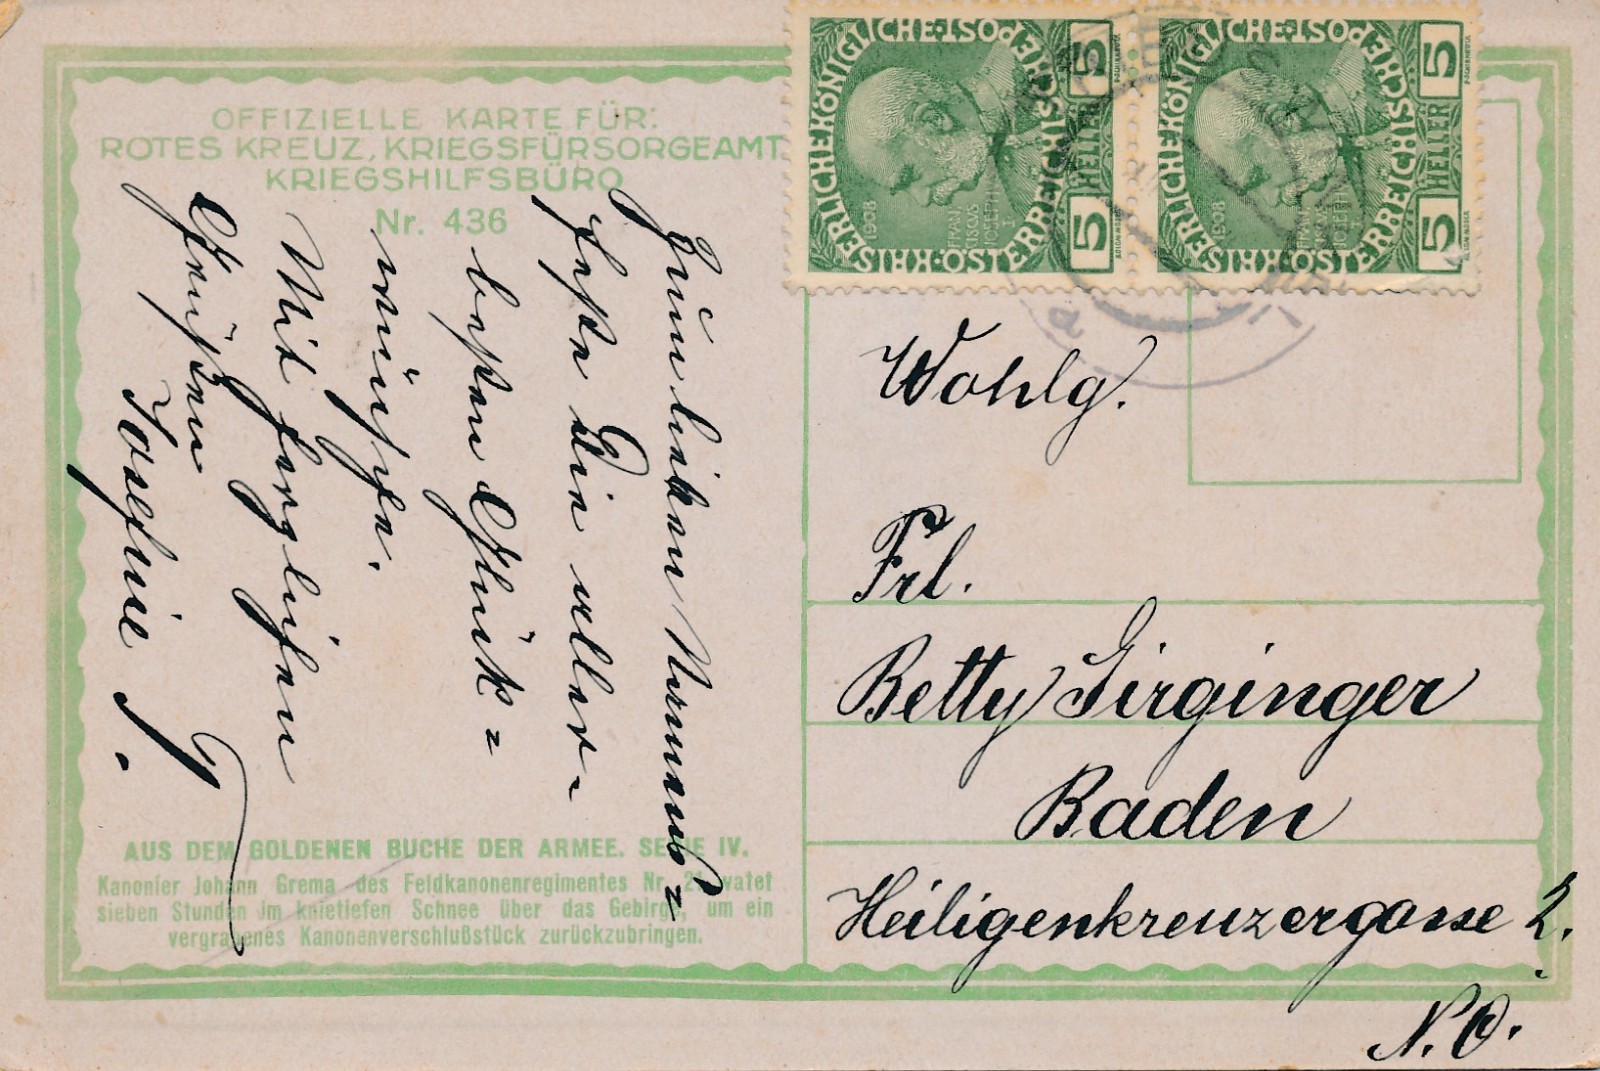 OFFIZIELLE KARTE FÜR:
ROTES KREUZ, KRIEGSFÜRSORGEAMT
KRIEGSHILFSBÜRO
Nr. 436
Zum lieben Namens=
feste Dir aller-
besten Glück=
wünsche.
Mit herzlichen
Grüßen
Josefine J.
AUS DEM GOLDENEN BUCHE DER ARMEE. SERIE IV.
Kanonier Johann Grema des Feldkanonenregimentes Nr. 21 watet
sieben Stunden im knietiefen Schnee über das Gebirge, um ein
vergrabenes Kanonenverschlußstück zurückzubringen.
KAISERLICHE KÖNIGLICHE ÖSTERREICHISCHE POST
5 HELLER 5
1908
FRANCISCUS JOSEPH I
KAISERLICHE KÖNIGLICHE ÖSTERREICHISCHE POST
5 HELLER 5
1908
a
Wohlg.
Frl.
Betty Girginger
Baden
Heiligenkreuzergasse 2.
N.Ö.